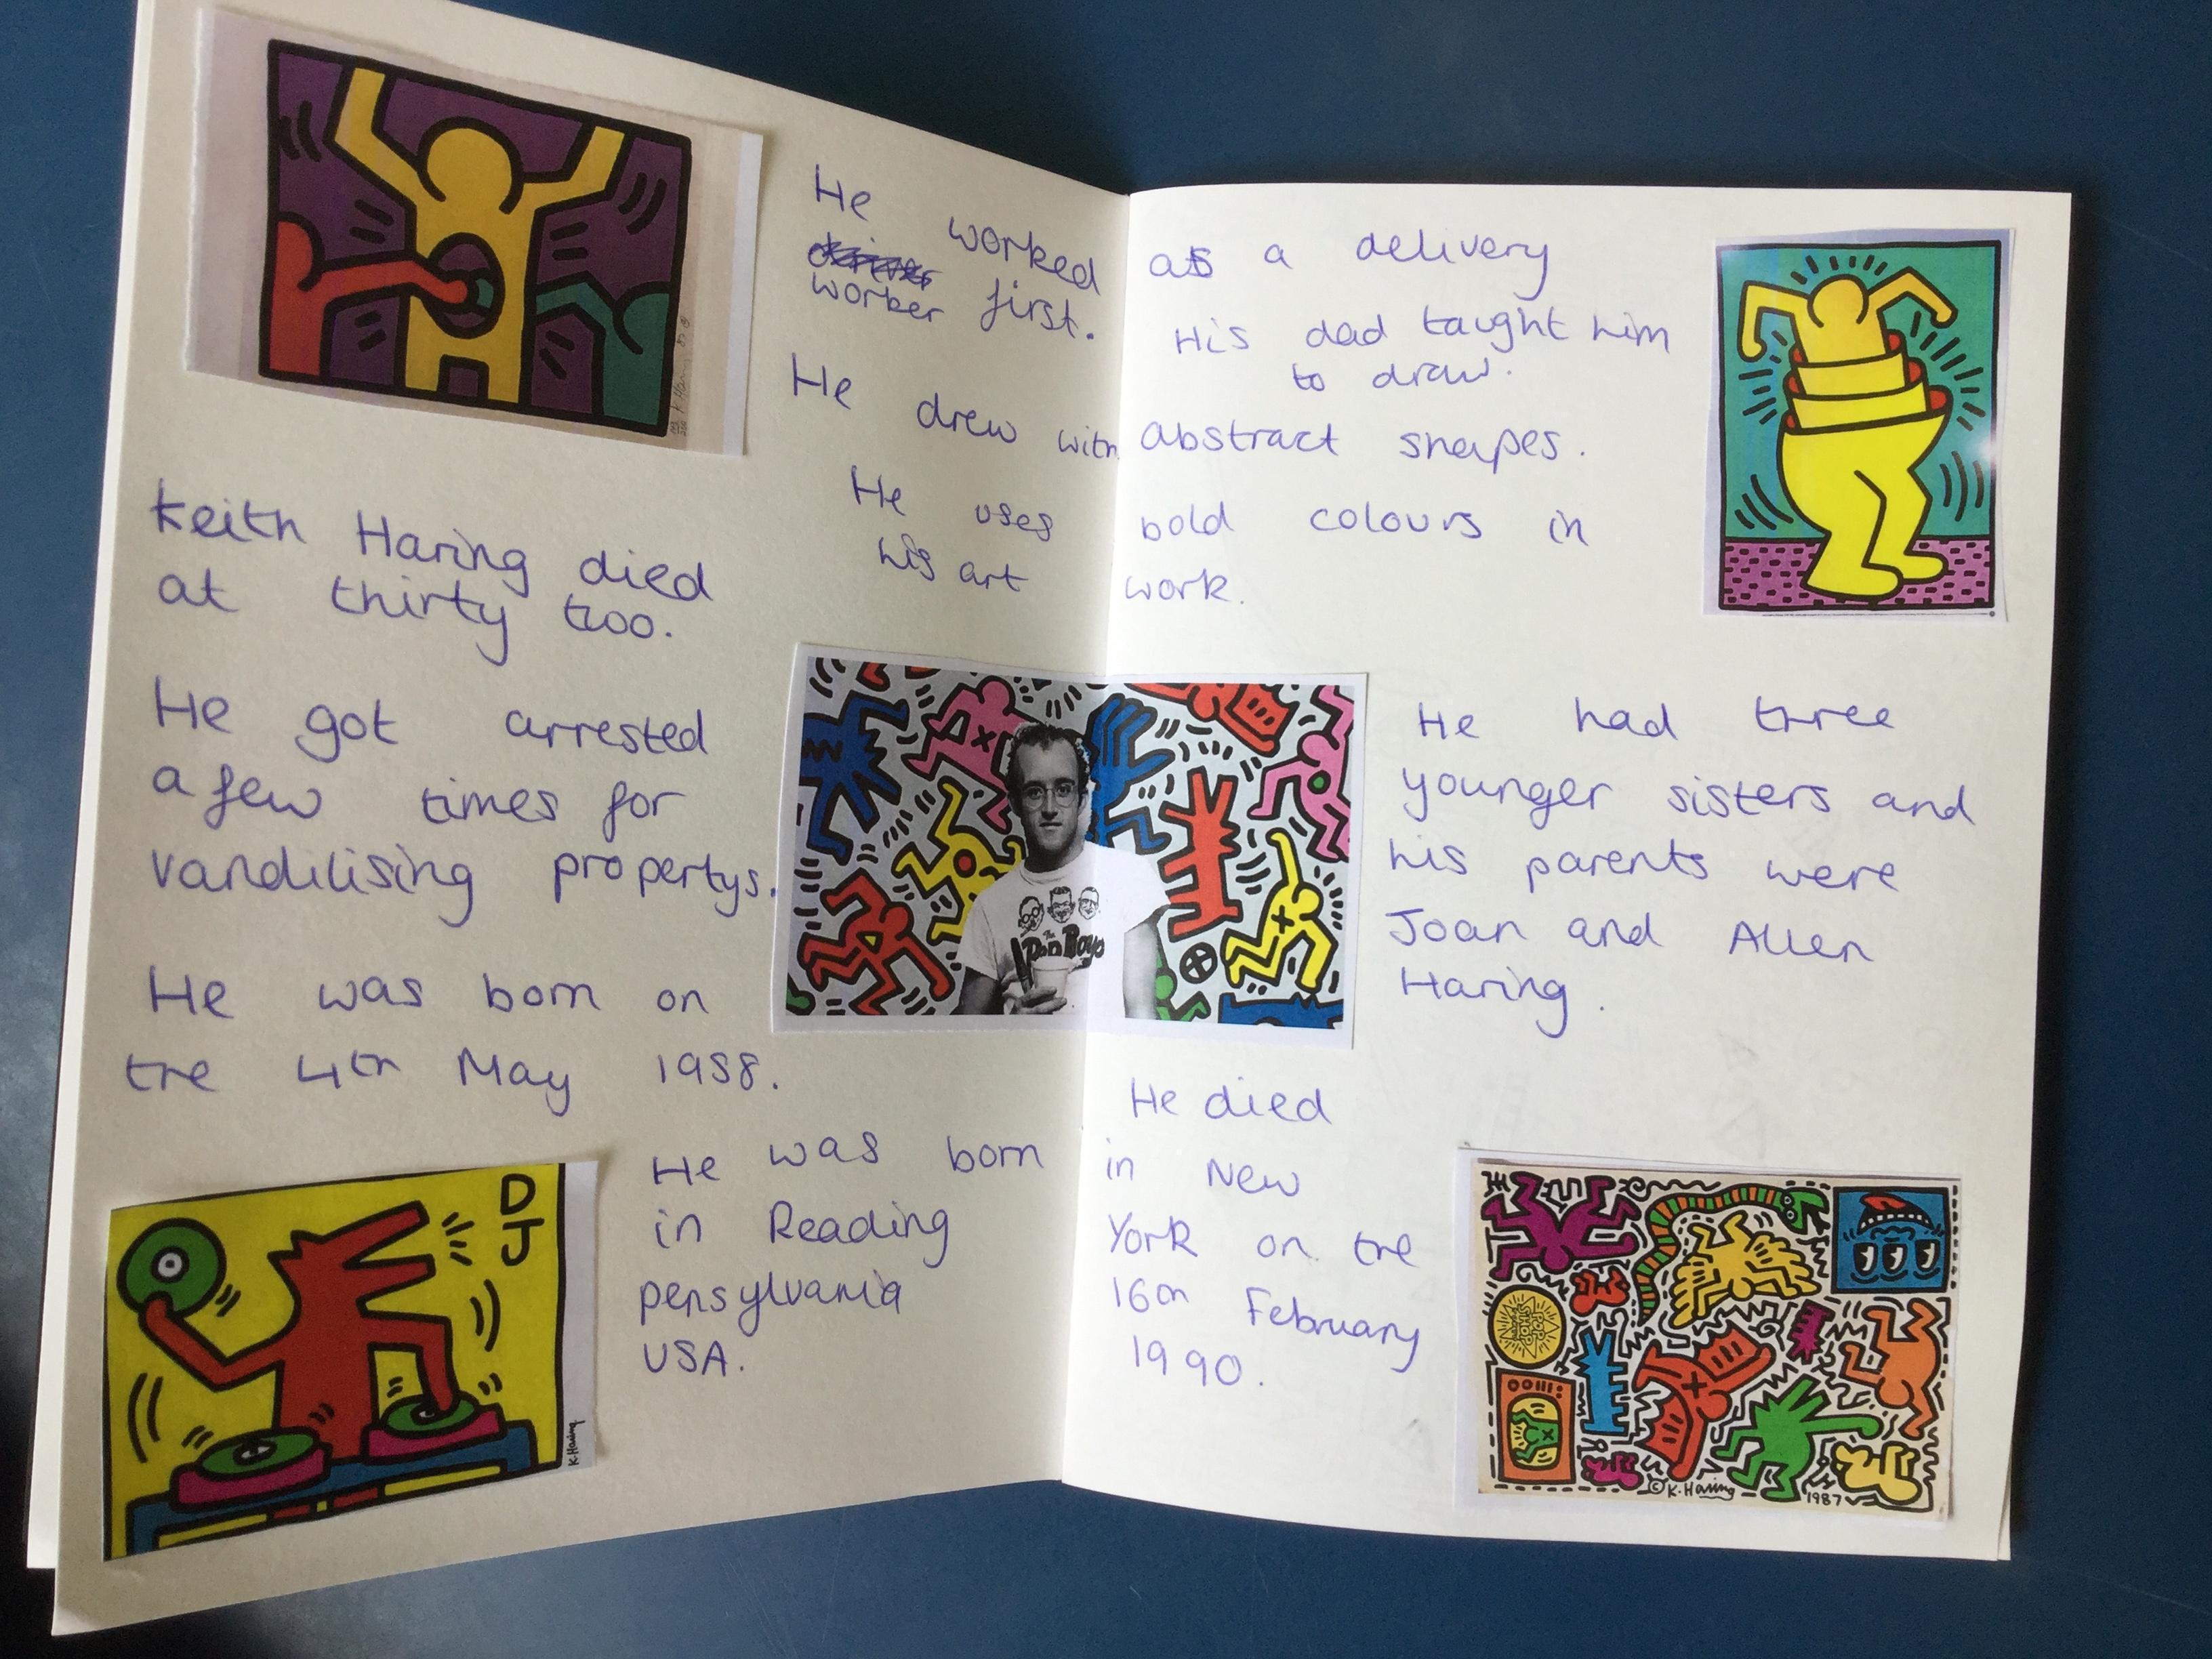 He worked as a delivery
driver
worker first.
His dad taught him
to draw.
He drew with abstract shapes.
He uses bold colours in
his art work.
Keith Haring died
at thirty two.
He got arrested
a few times for
vandilising propertys.
He was born on
the 4th May 1958.
He was born
in Reading
pensylvania
USA.
He had three
younger sisters and
his parents were
Joan and Allen
Haring.
He died
in New
York on the
16th February
1990.
D
J
K. Haring
The
Bad Boys
POP
SHOP
© K. Haring
1987